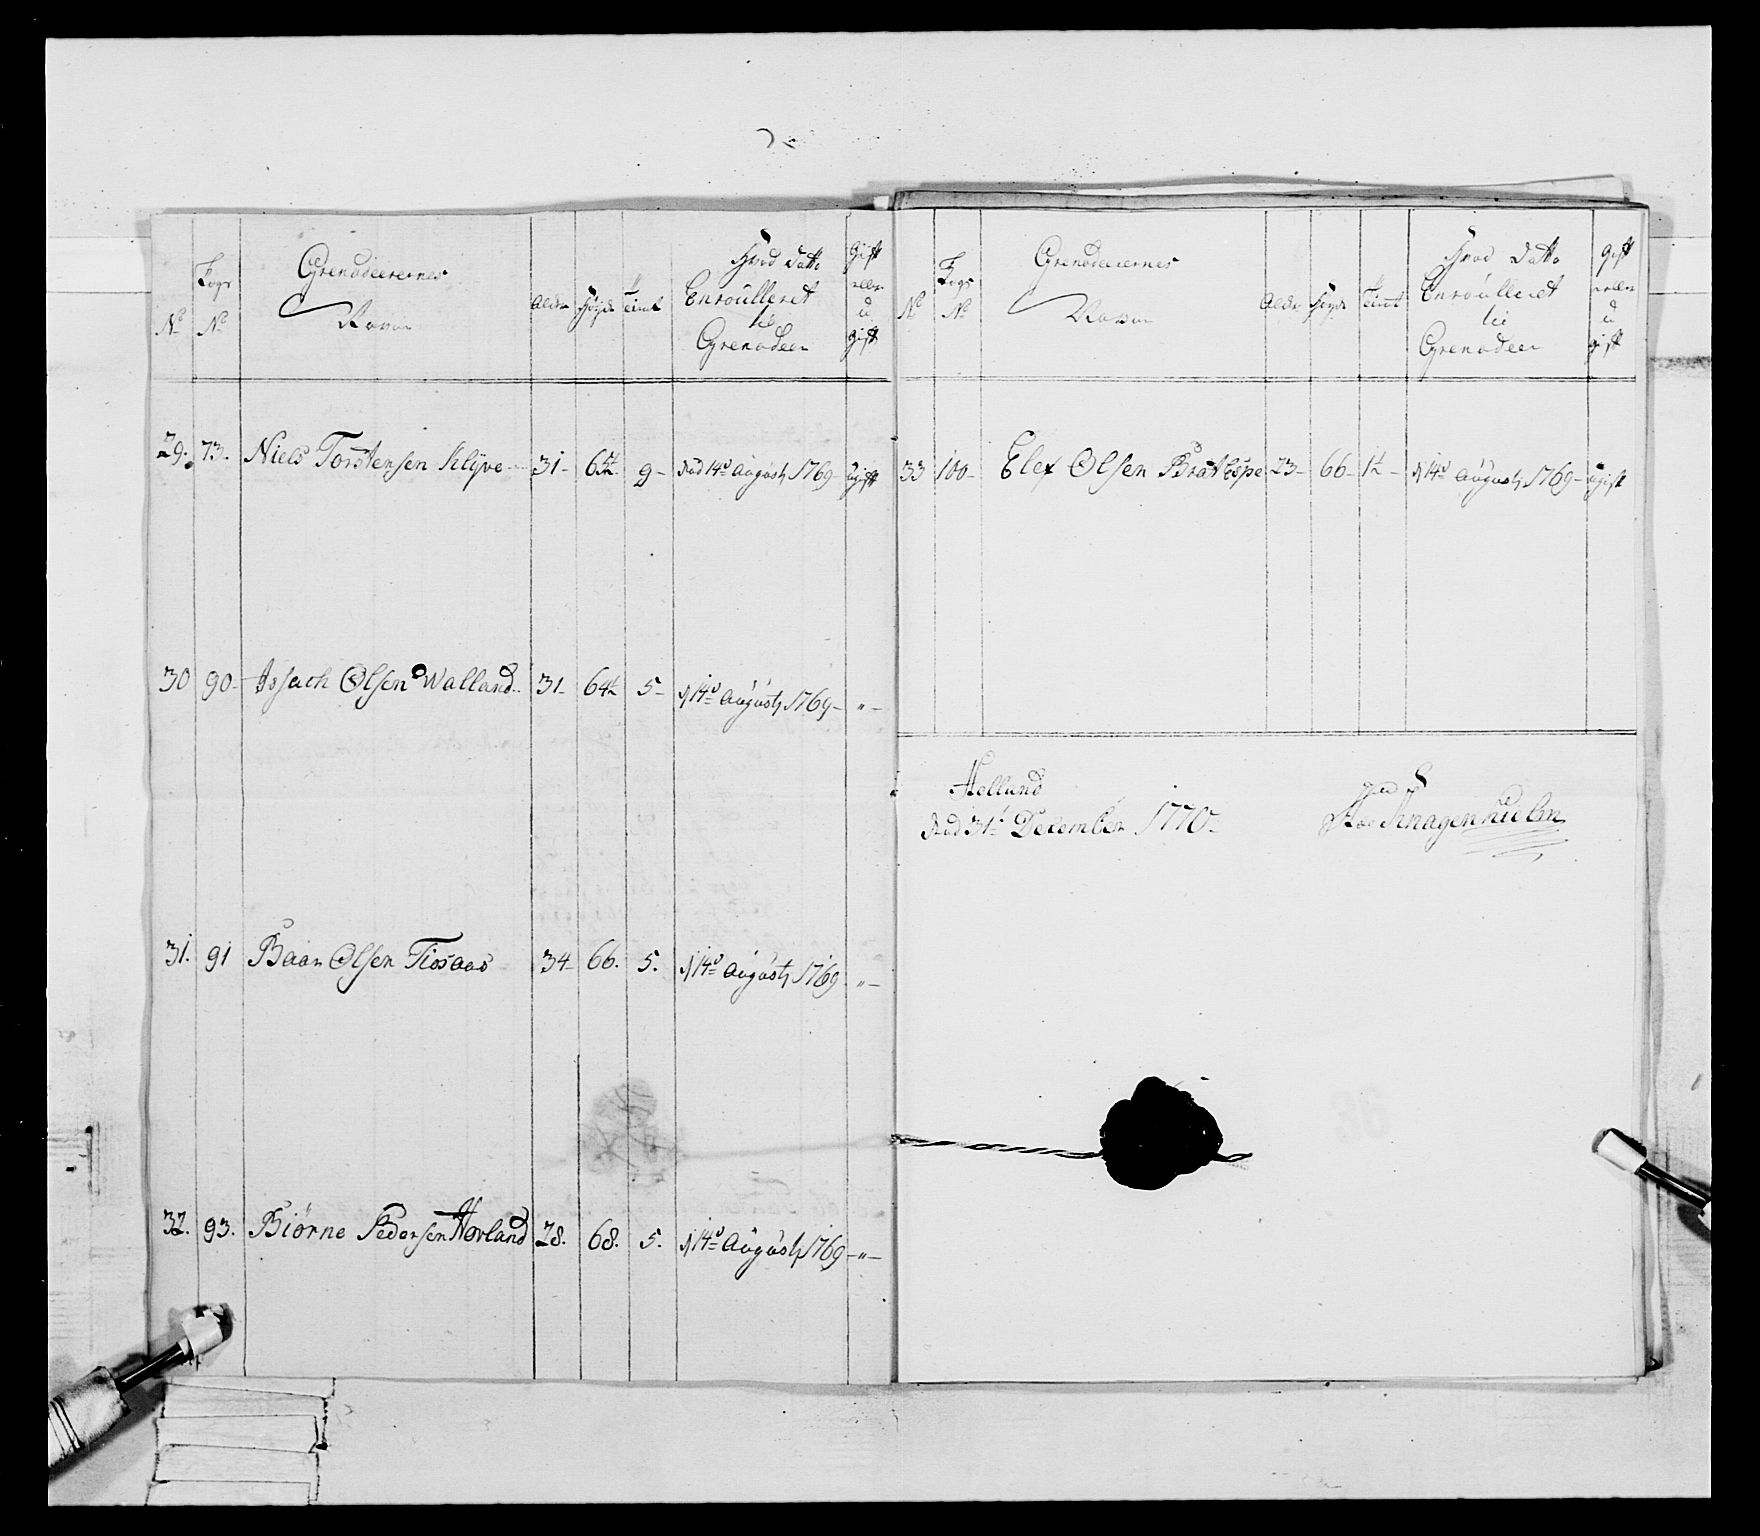 No
Logs No
Grenadeerernes Navne
Alder
Höyde
Timt
Hvad Datto Enroulleret til Grenadeer
Gift eller u gift
29. 73. Niels Torstensen Klÿve 31- 65½ 9- Dend 14de Augustj 1769- ugift
30 90- Issach Olsen Walland 31- 64½ 5- d 14de Augustj 1769- "-
31. 91 Baar Olsen Tiosaas 34- 66. 5. d 14de Augustj 1769 "-
32. 93. Biörne Pedersen Hovland 28. 68. 5. d 14de Augustj 1769- "-
No
Logs No
Grenadeerernes Navne
Alder
Höyde
Timt
Hvad Datto Enroulleret til Grenadeer
Gift eller u gift
33 100- Elef Olsen Bratespe 23- 66- 1½- d 14de Augustj 1769- ugift
Hellund
Dend 31te December 1770-
Knagenhielm